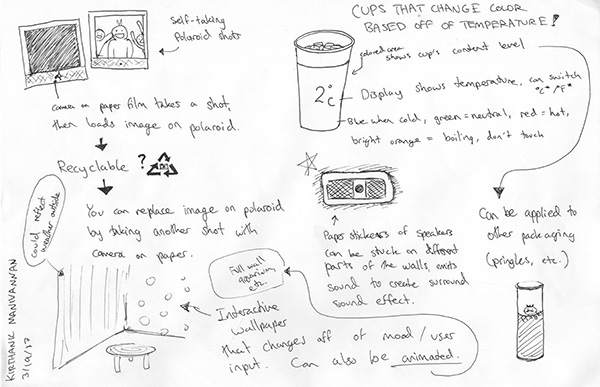 Self-taking
Polaroid shots
Camera on paper film takes a shot,
then loads image on polaroid.
Recyclable ?
You can replace image on polaroid
by taking another shot with
camera on paper.
could reflect
weather outside
Interactive
wallpaper
that changes off of mood / user
input. Can also be animated.
Full wall
aquarium
etc.
CUPS THAT CHANGE COLOR
BASED OFF OF TEMPERATURE!
colored area
shows cup's content level
2°C
Display shows temperature, can switch
"C" / "F"
Blue when cold, green = neutral, red = hot,
bright orange = boiling, don't touch
Paper stickers of speakers
can be stuck on different
parts of the walls, emits
sound to create surround
sound effect.
Can be applied to
other packaging
(pringles, etc.)
KIRTHANK MANIVANNAN